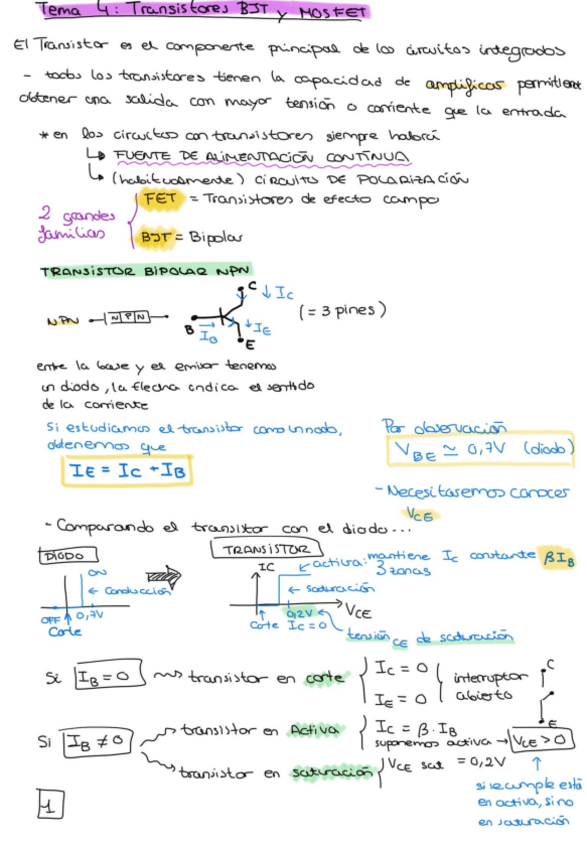 Tema 4: Transistores BJT y MOSFET
El Transistor es el componente principal de los circuitos integrados
- todos los transistores tienen la capacidad de amplificar permitiend
obtener una salida con mayor tensión o corriente que la entrada
* en los circuitos con transistores siempre habrá
↳ FUENTE DE ALIMENTACIÓN CONTÍNUA
↳ (habitualmente) CIRCUITO DE POLARIZACIÓN
2 grandes familias
FET = Transistores de efecto campo
BJT = Bipolar
TRANSISTOR BIPOLAR NPN
NPN
N P N
B
C
E
IB
↓ IC
↓ IE
(= 3 pines)
entre la base y el emisor tenemos
un diodo, la flecha indica el sentido
de la corriente
Si estudiamos el transistor como un nodo,
obtenemos que
IE = IC + IB
Por observación
VBE ≃ 0,7V (diodo)
- Necesitaremos conocer
VCE
- Comparando el transistor con el diodo...
DIODO
ON
← Conducción
OFF
0,7V
Corte
TRANSISTOR
IC
← activa: mantiene Ic constante βIB
3 zonas
← saturación
0,2V
VCE
Corte Ic=0
tensión CE de saturación
Si IB = 0 → transistor en corte
Ic = 0
IE = 0
interruptor
abierto
C
E
Si IB ≠ 0
transistor en Activa
Ic = β · IB
suponemos activa → VCE > 0
transistor en saturación
VCE sat = 0,2V
si se cumple está
en activa, si no
en saturación
1